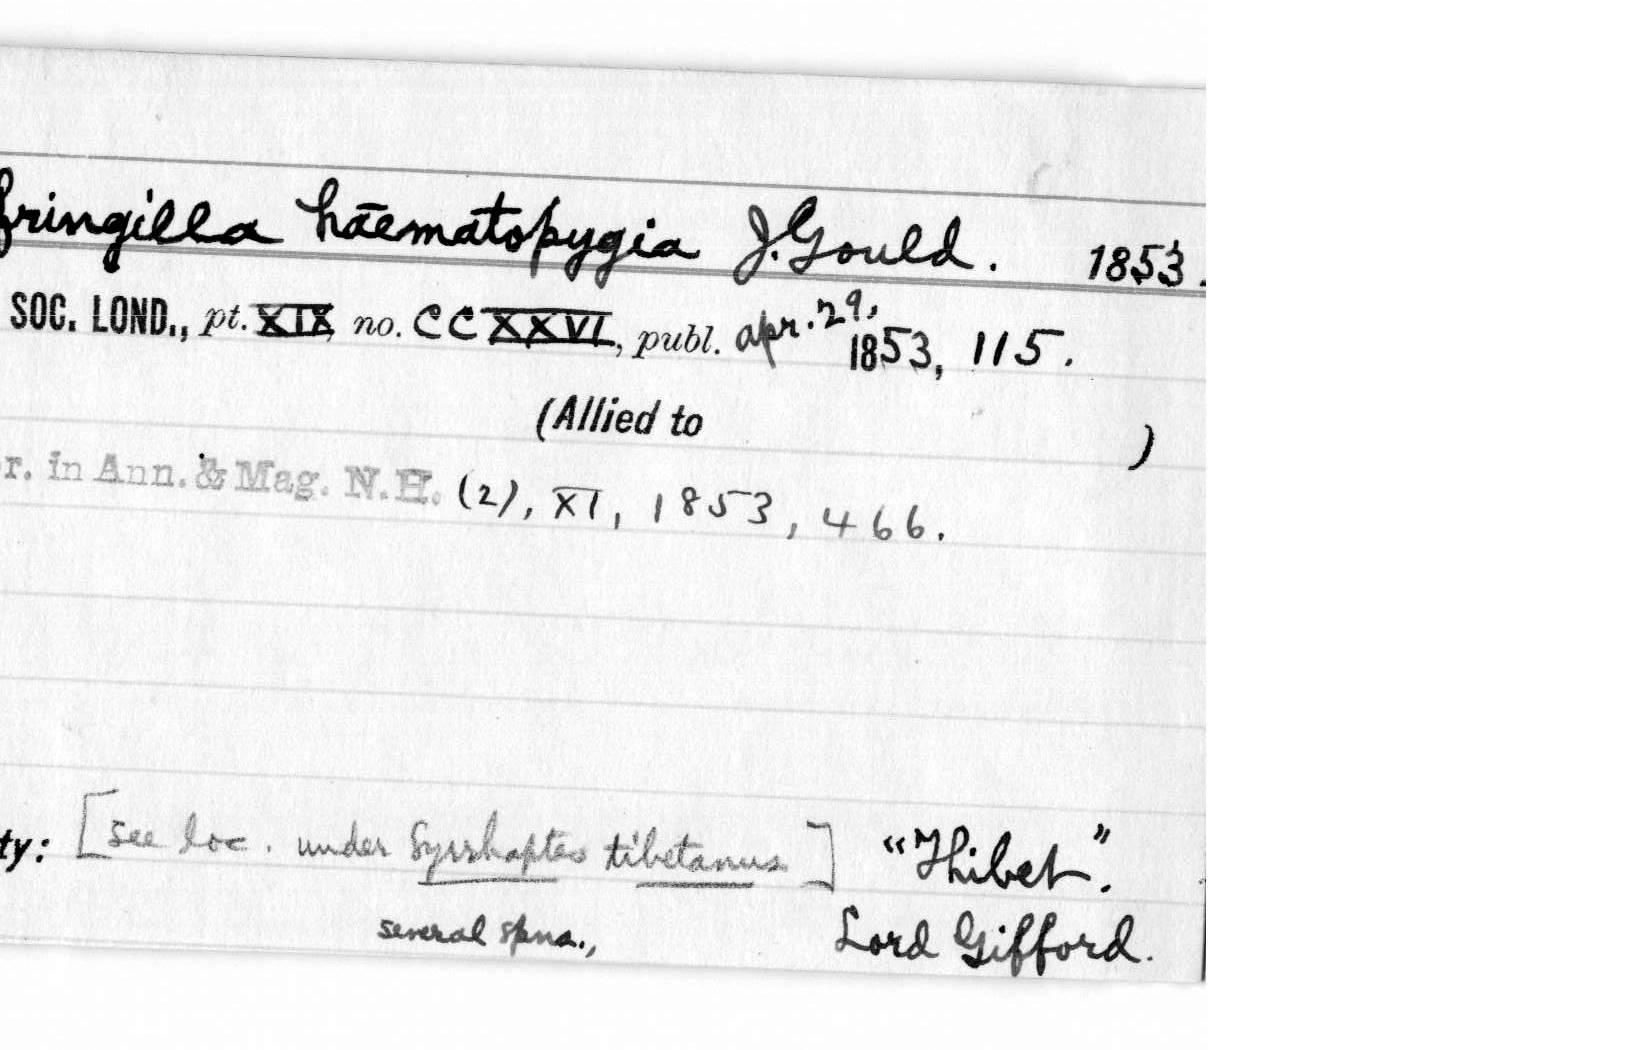 fringilla haematopygia J. Gould. 1853.
SOC. LOND., pt. XIX, no. CCXXVI, publ. apr. 29, 1853, 115.
(Allied to )
r. in Ann. & Mag. N.H. (2), XI, 1853, 466.
ty: [see loc. under Syrrhaptes tibetanus] "Thibet".
several spns., Lord Gifford.